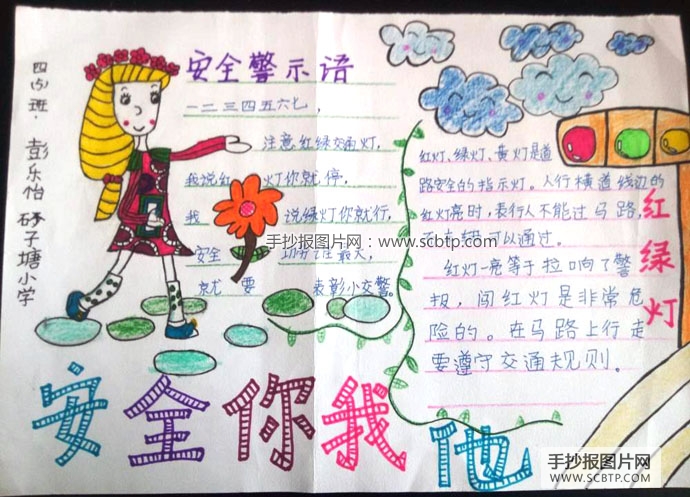 四(5)班·彭乐怡 砂子塘小学
安全警示语
一二三四五六七，
注意红绿交通灯，
我说红 灯你就停，
我 说绿灯你就行，
安全 最大，
就 要 表彰小交警。
红灯、绿灯、黄灯是道
路安全的指示灯。人行横道线边的
红灯亮时，表行人不能过马路，
可以通过。
红灯一亮等于拉响了警
报，闯红灯是非常危
险的。在马路上行走
要遵守交通规则。
红绿灯
安全你我他
手抄报图片网：www.scbtp.com
手抄报图片网
WWW.SCBTP.COM